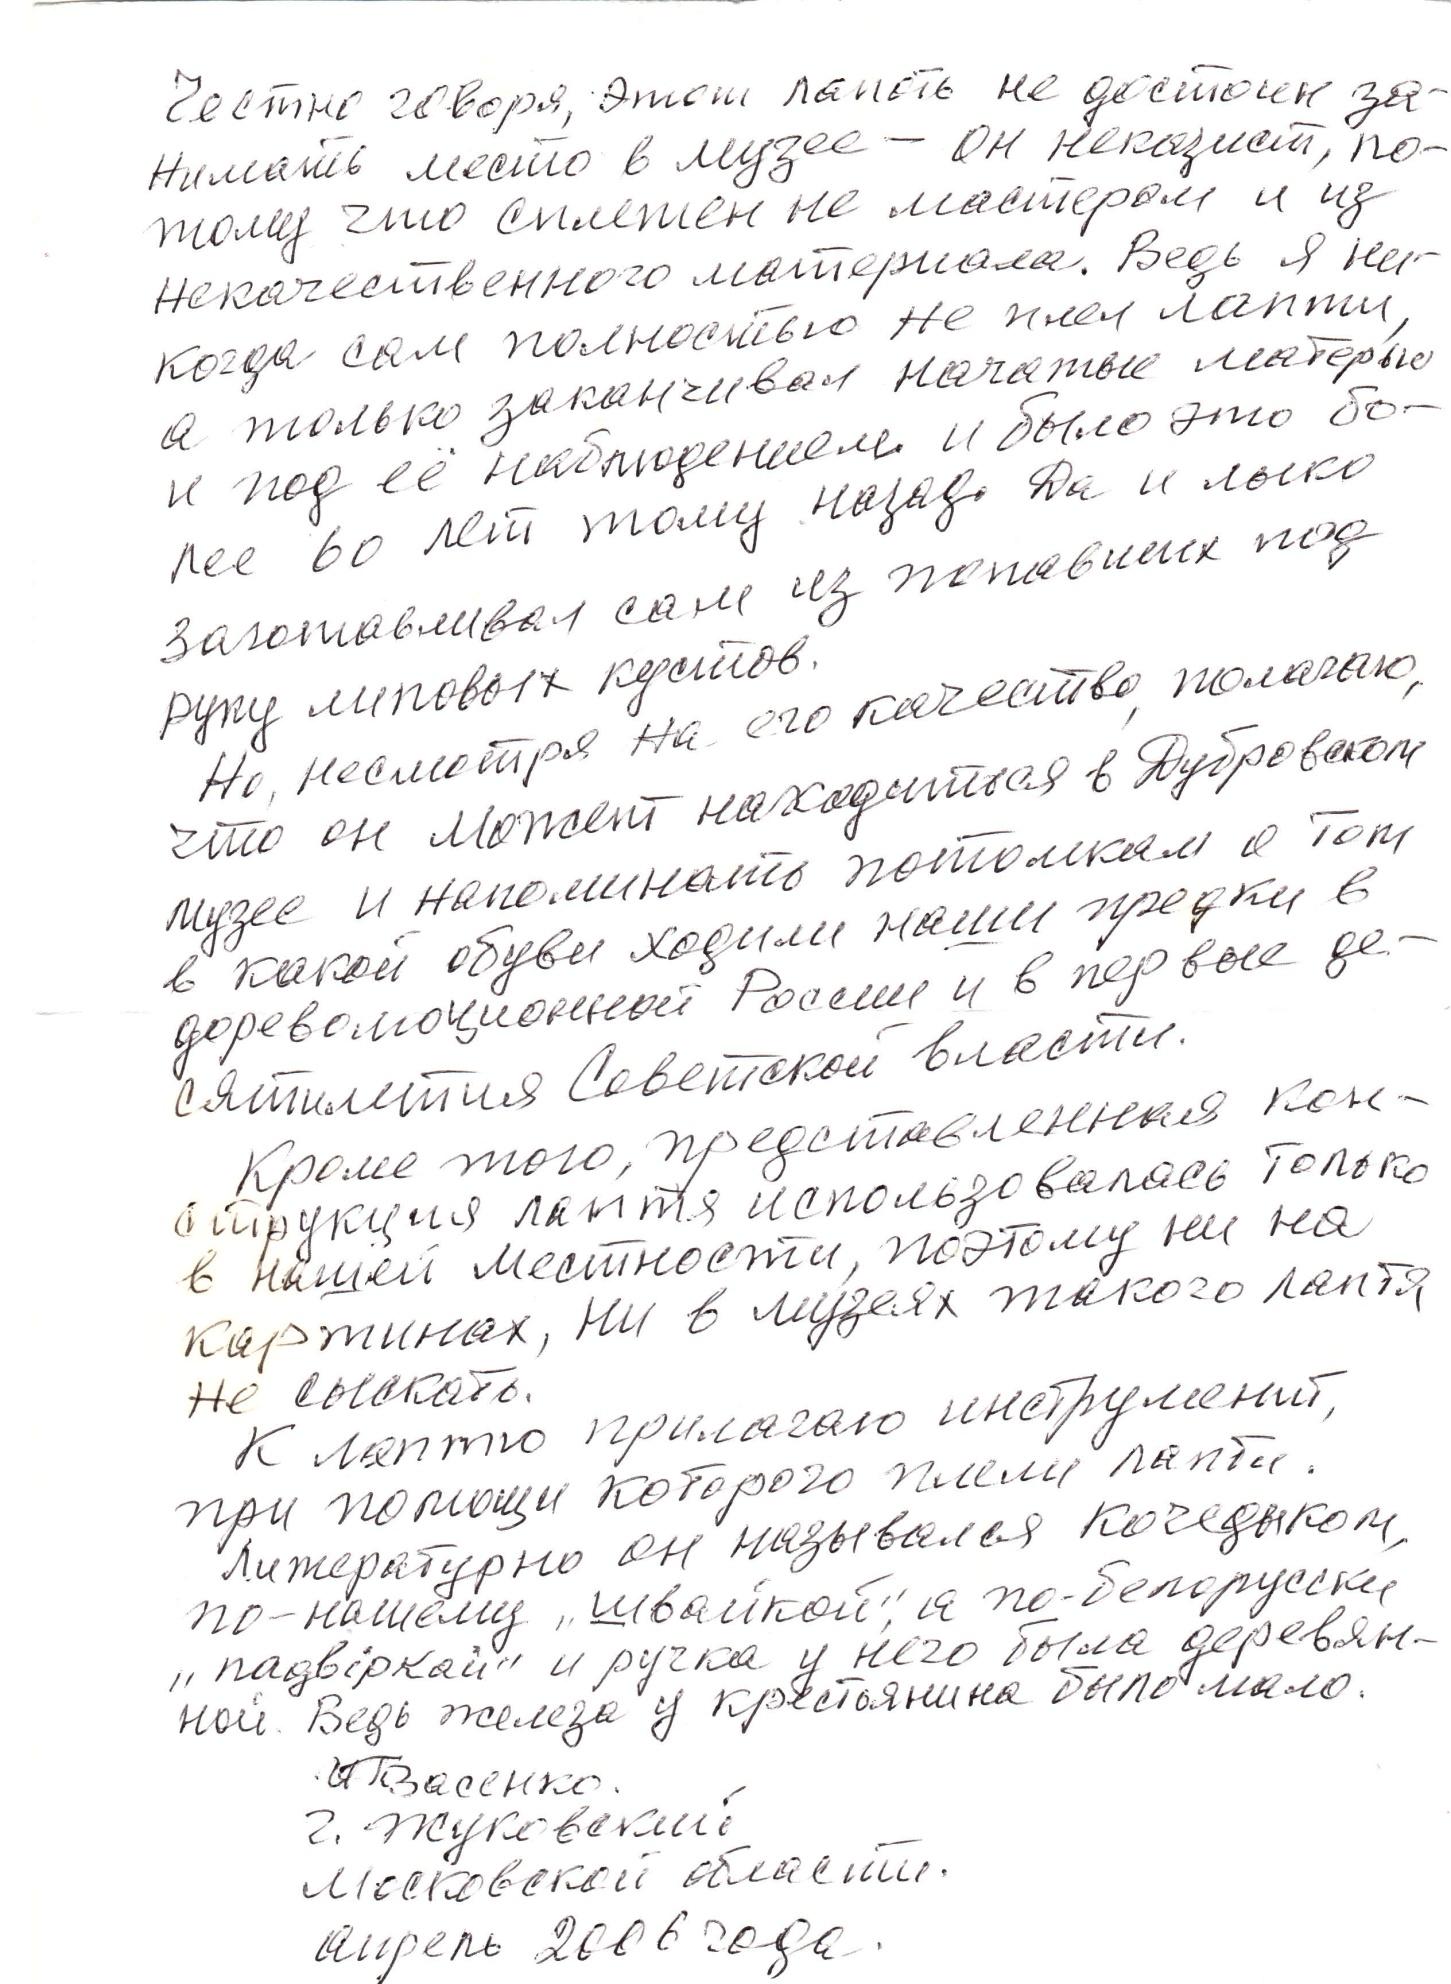 Честно говоря, этот лапоть не достоин за-
нимать место в музее – он неказист, по-
тому что сплетен не мастером и из
некачественного материала. Ведь я ни-
когда сам полностью не плел лапти,
а только заканчивал начатые матерью
и под её наблюдением и было это бо-
лее 60 лет тому назад. Да и лыко
заготавливал сам из попавших под
руку липовых кустов.
Но, несмотря на его качество, полагаю,
что он может находиться в Дубровском
музее и напоминать потомкам о том
в какой обуви ходили наши предки в
дореволюционной России и в первые де-
сятилетия Советской власти.
Кроме того, представленная кон-
струкция лаптя использовалась только
в нашей местности, поэтому ни на
картинах, ни в музеях такого лаптя
не сыскать.
К лаптю прилагаю инструмент,
при помощи которого плели лапти.
Литературно он назывался кочедыком,
по-нашему „швайкой", а по-белорусски
„падвiркай" и ручка у него была деревян-
ной. Ведь железа у крестьянина было мало.
г. Жуковский
Московской области.
апрель 2006 года.